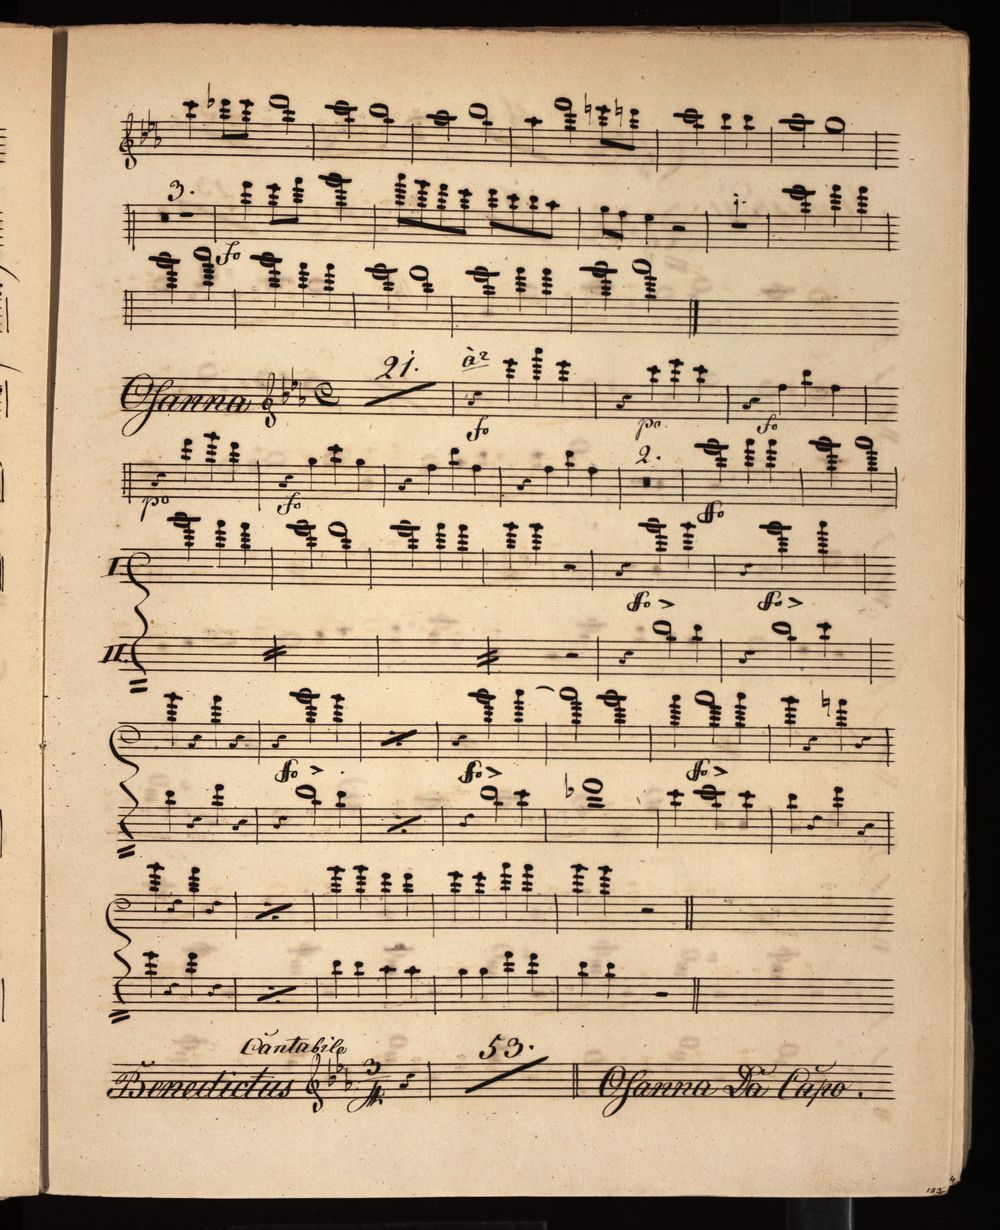 3.
1.
fo
Osanna 21. à2
fo po fo
2.
po fo ffo
I
ffo > ffo >
II.
ffo > ffo > ffo >
Cantabile
Benedictus 3/4 53. Osanna Da Capo.